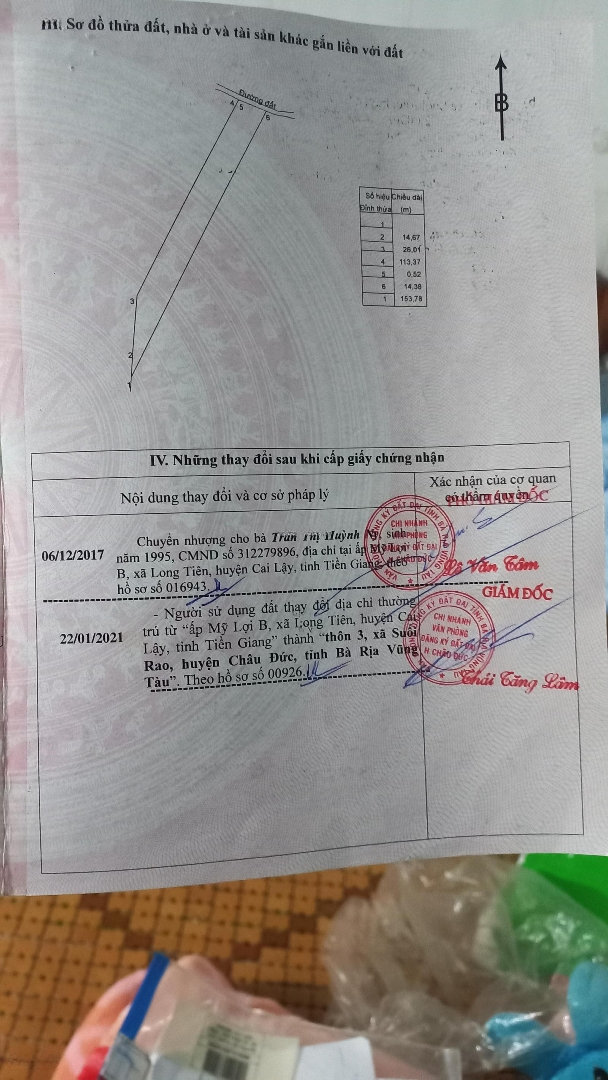 III. Sơ đồ thửa đất, nhà ở và tài sản khác gắn liền với đất
B
Đường đất
4
5
6
3
2
1
Số hiệu Chiều dài
Đỉnh thửa (m)
1
2 14,67
3 26,01
4 113,37
5 0,52
6 14,38
1 153,78
IV. Những thay đổi sau khi cấp giấy chứng nhận
Nội dung thay đổi và cơ sở pháp lý
Xác nhận của cơ quan
có thẩm quyền
06/12/2017
Chuyển nhượng cho bà Trần Thị Huỳnh sinh
năm 1995, CMND số 312279896, địa chỉ tại ấp Mỹ Lợi
B, xã Long Tiên, huyện Cai Lậy, tỉnh Tiền Giang, theo
hồ sơ số 016943.
PHÓ GIÁM ĐỐC
CHI NHÁNH
Văn Tâm
22/01/2021
- Người sử dụng đất thay đổi địa chỉ thường
trú từ “ấp Mỹ Lợi B, xã Long Tiên, huyện Cai
Lậy, tỉnh Tiền Giang” thành “thôn 3, xã Suối
Rao, huyện Châu Đức, tỉnh Bà Rịa Vũng
Tàu”. Theo hồ sơ số 00926.
GIÁM ĐỐC
CHI NHÁNH
VĂN PHÒNG
ĐĂNG KÝ ĐẤT ĐAI
H. CHÂU ĐỨC
Thái Tăng Lâm